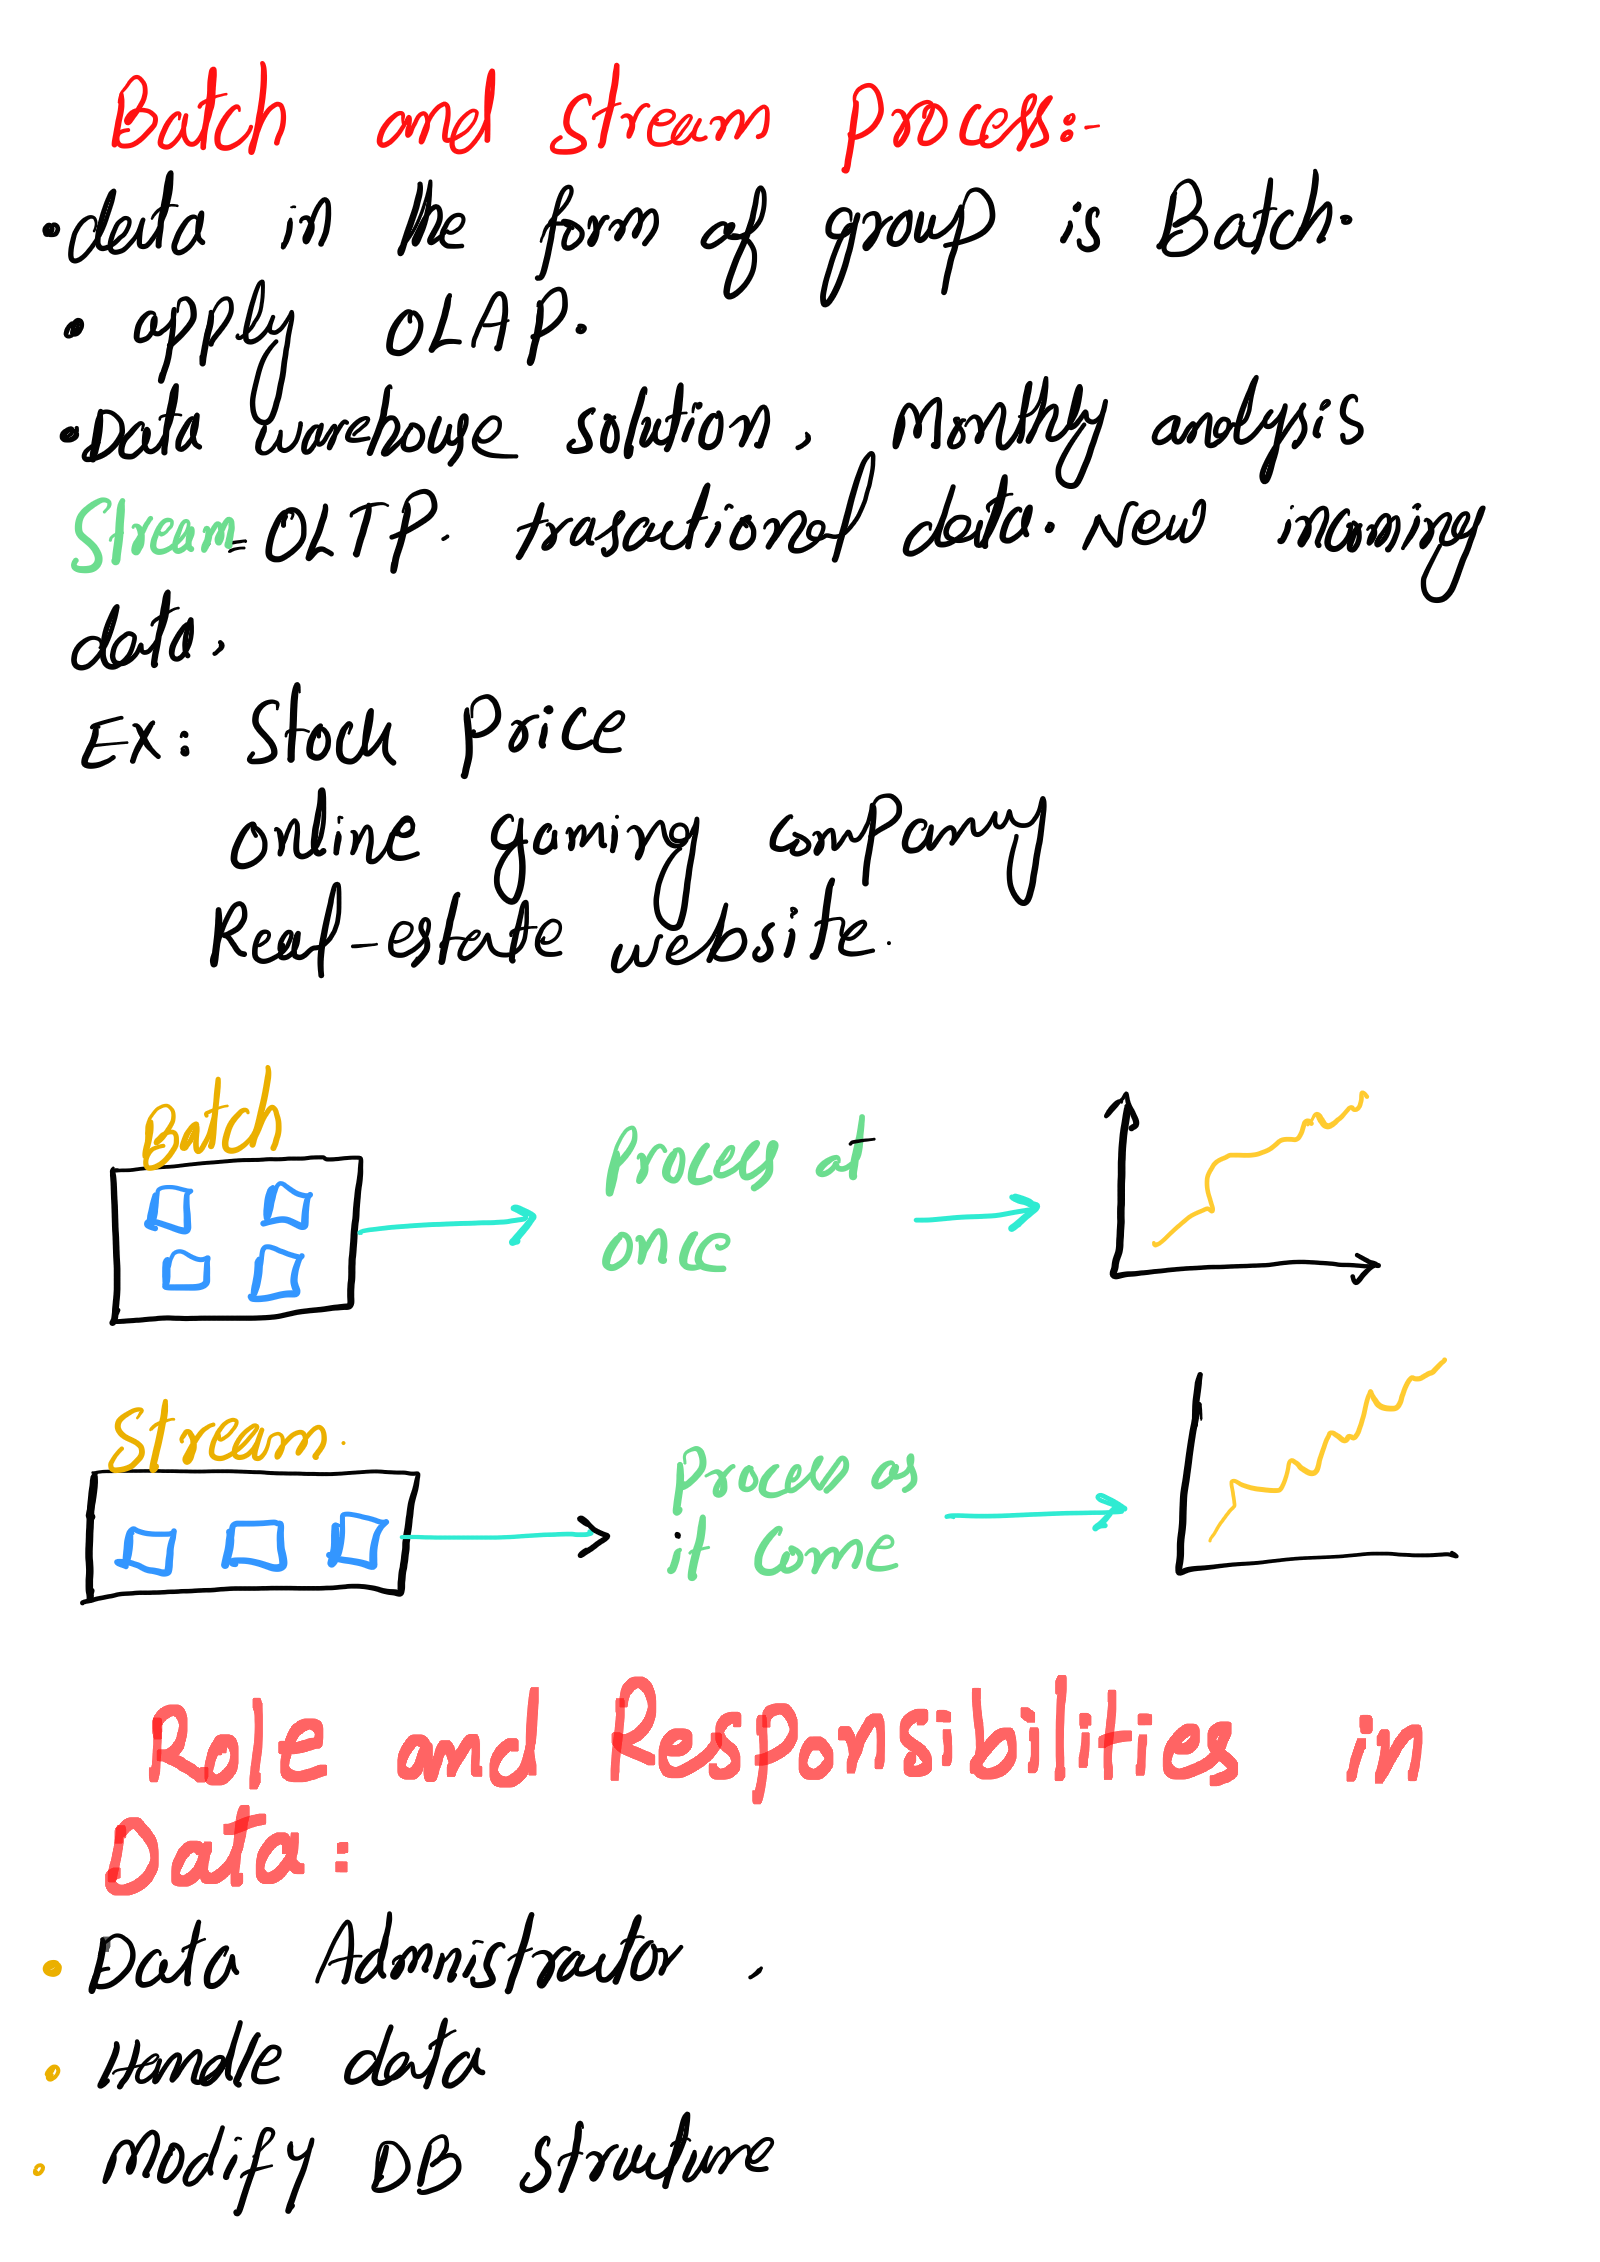 Batch and stream Process:-
• data in the form of group is Batch.
• apply OLAP.
• Data warehouse solution, Monthly analysis
Stream = OLTP. trasactional data. New incoming
data,
EX: Stock Price
online gaming company
Real-estate website.
Batch
Process at
once
Stream.
Process as
it come
Role and Responsibilities in
Data:
• Data Admnistrator,
• Handle data
• Modify DB structure